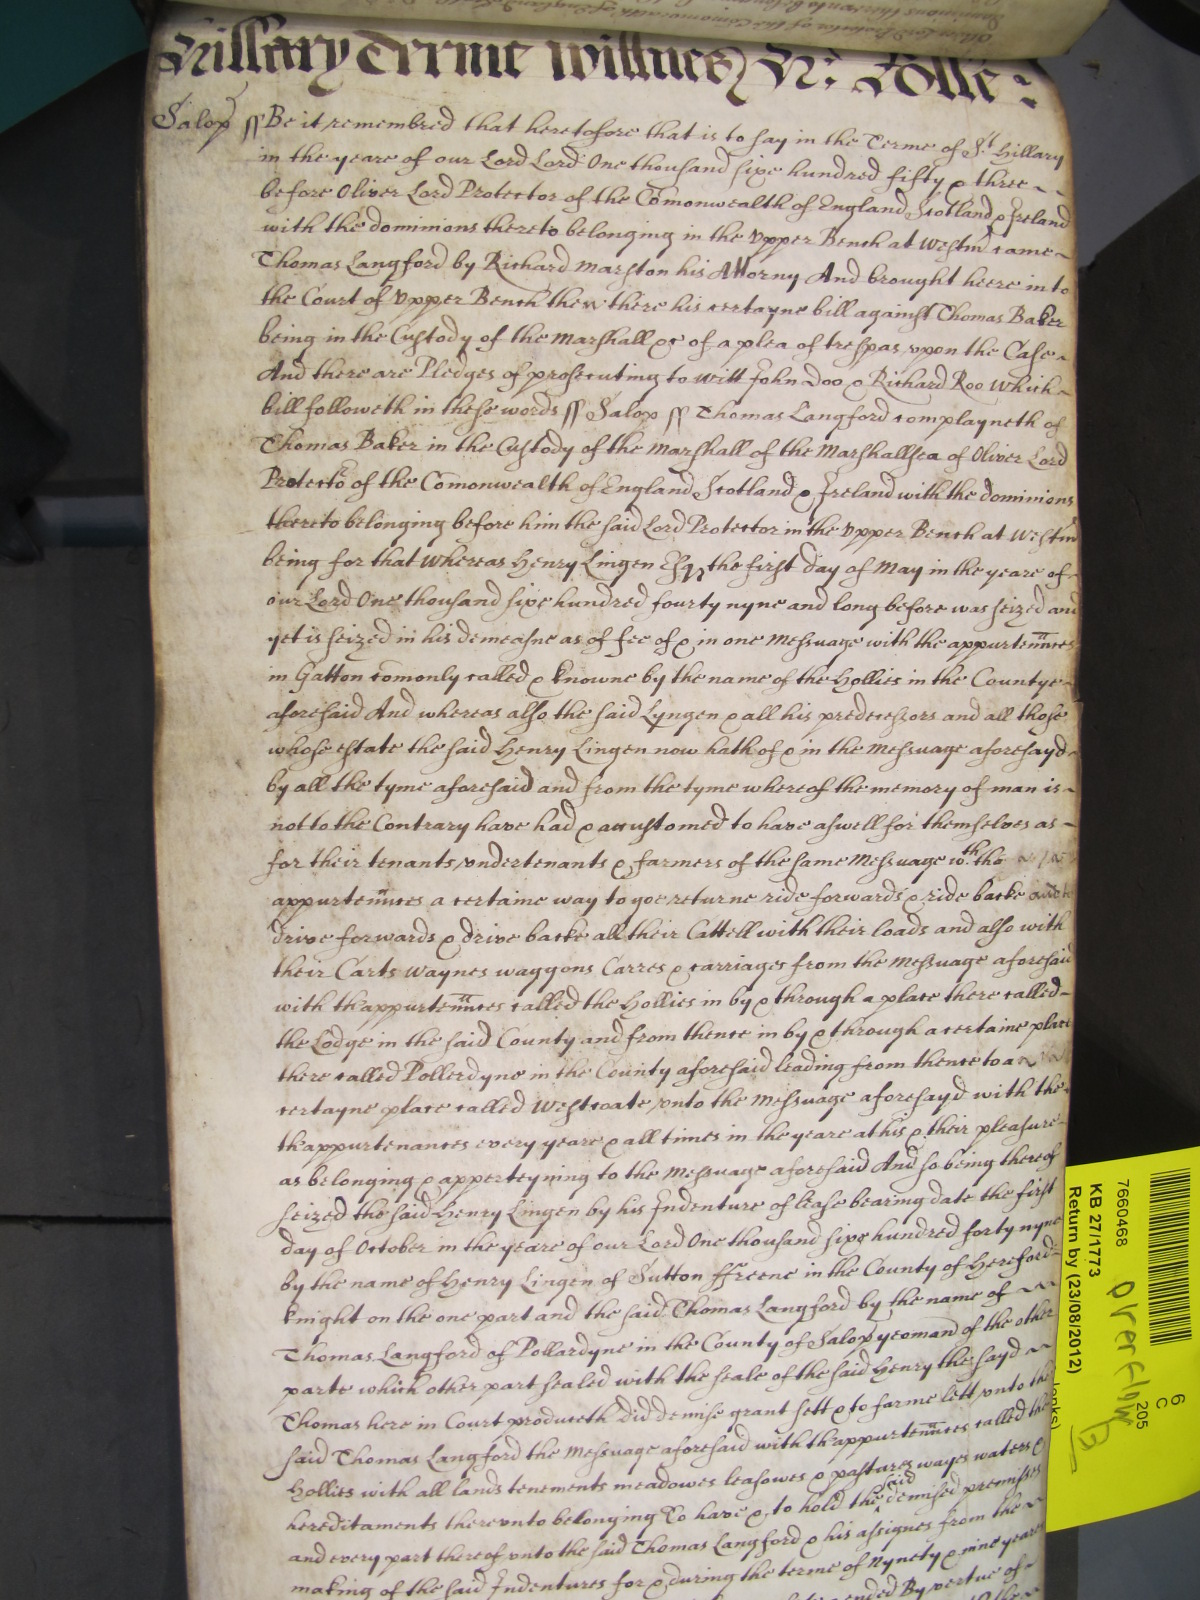 Hillary Terme Willnes H: Rolle:
Salop ss Be it remembred that heretofore that is to say in the Terme of St. Hillary
in the yeare of our Lord Lord One thousand sixe hundred fifty & three
before Oliver Lord Protector of the Comonwealth of England Scotland & Ireland
with the dominions thereto belonging in the Vpper Bench at Westm came
Thomas Langford by Richard Marston his Attorny And brought heere into
the Court of Vpper Bench then there his certayne bill against Thomas Baker
being in the Custody of the Marshall &c of a plea of trespas vpon the Case
And there are Pledges of prosecuting to witt John Doo & Richard Roo which
bill followeth in these words ss Salop ss Thomas Langford complayneth of
Thomas Baker in the Custody of the Marshall of the Marshallsea of Oliver Lord
Protector of the Comonwealth of England Scotland & Ireland with the dominions
thereto belonging before him the said Lord Protector in the Vpper Bench at Westm
being for that whereas Henry Lingen Esqr the first day of May in the yeare of
our Lord One thousand sixe hundred fourty nyne and long before was seized and
yet is seized in his demeasne as of fee of & in one Messuage with the appurtennces
in Gatton comonly called & knowne by the name of the Hollies in the Countye
aforesaid And whereas also the said Lyngen & all his predecessors and all those
whose estate the said Henry Lingen now hath of & in the Messuage aforesayd
by all the tyme aforesaid and from the tyme whereof the memory of man is
not to the Contrary have had & accustomed to have aswell for themselves as
for their tenants vndertenants & farmers of the same Messuage wth. the
appurtennces a certaine way to goe returne ride forwards & ride backe and to
drive forwards & drive backe all their Cattell with their loads and also with
their Carts Waynes waggons Carres & carriages from the Messuage aforesaid
with thappurtennces called the Hollies in by & through a place there called
the Lodge in the said County and from thence in by & through a certaine place
there called Pollerdyne in the County aforesaid leading from thence to a
certayne place called Westcoate vnto the Messuage aforesayd with the
thappurtenances every yeare & all times in the yeare at his & their pleasure
as belonging & apperteyning to the Messuage aforesaid And so being thereof
seized the said Henry Lingen by his Indenture of lease bearing date the first
day of October in the yeare of our Lord One thousand sixe hundred forty nyne
by the name of Henry Lingen of Sutton ffreene in the County of Hereford
knight on the one part and the said Thomas Langford by the name of
Thomas Langford of Pollardyne in the County of Salop yeoman of the other
parte which other part sealed with the seale of the said Henry the sayd
Thomas here in Court produceth did demise grant sett & to farme lett vnto the
said Thomas Langford the Messuage aforesaid with thappurtennces called the
Hollies with all lands tenements meadowes leasowes & pastures wayes waters &
hereditaments therevnto belonging To have & to hold the said demised premisses
and every part thereof vnto the said Thomas Langford & his assignes from the
making of the said Indentures for & during the terme of Nynety & nine yeare
ended By vertue of
7660468
KB 27/1773
Return by (23/08/2012)
overflow
6
C
205